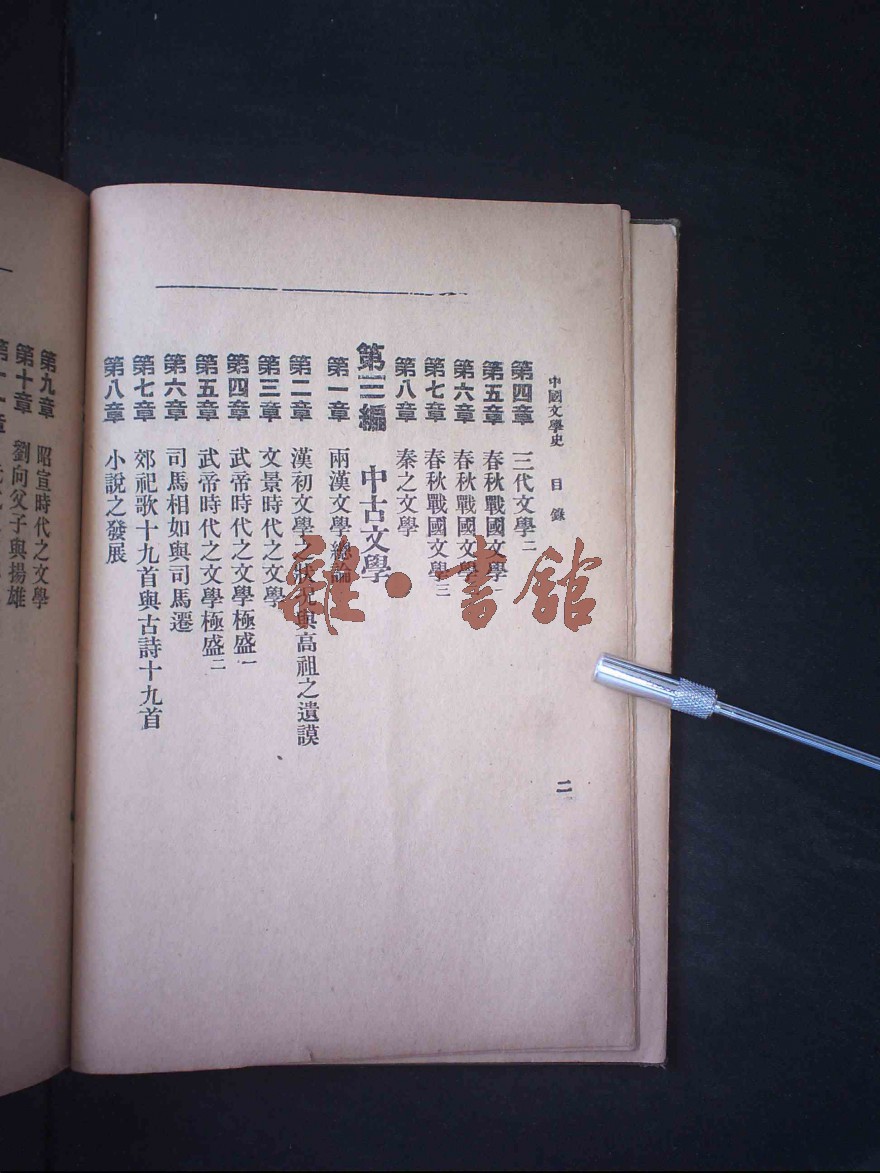 中國文學史 目錄
第四章 三代文學二
第五章 春秋戰國文學一
第六章 春秋戰國文學二
第七章 春秋戰國文學三
第八章 秦之文學
第三編 中古文學
第一章 兩漢文學總論
第二章 漢初文學之狀況與高祖之遺謨
第三章 文景時代之文學
第四章 武帝時代之文學極盛一
第五章 武帝時代之文學極盛二
第六章 司馬相如與司馬遷
第七章 郊祀歌十九首與古詩十九首
第八章 小說之發展
二
第九章 昭宣時代之文學
第十章 劉向父子與揚雄
雜·書館